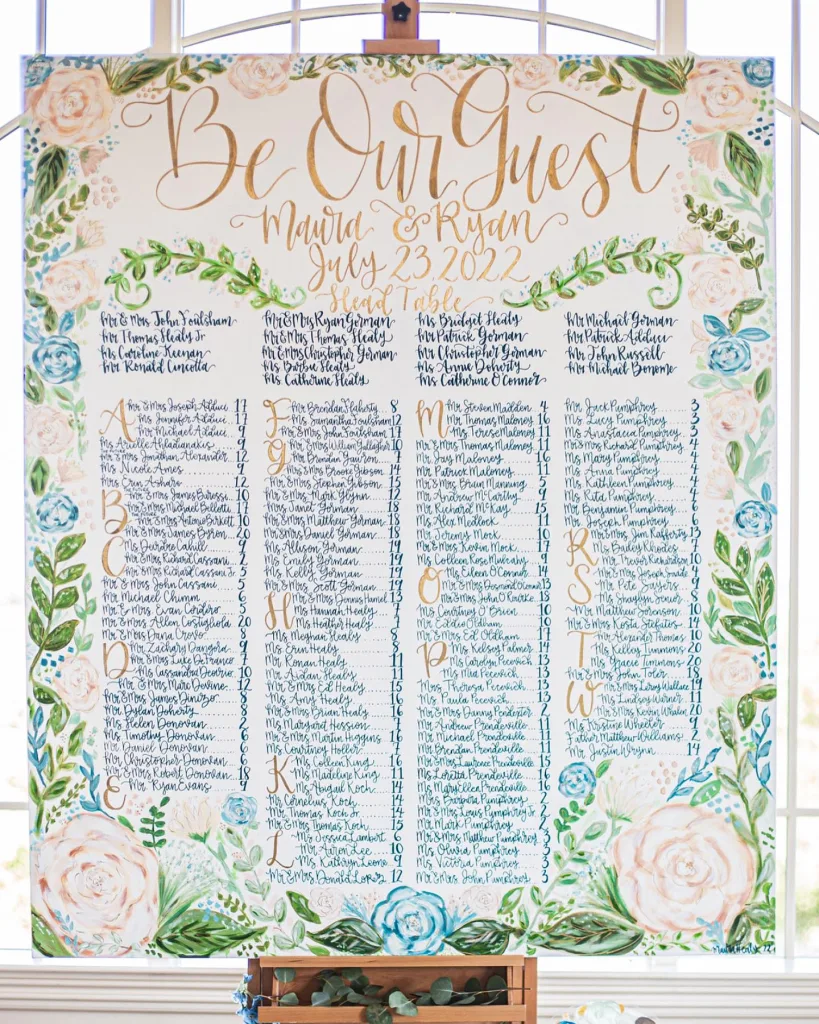 Be Our Guest
Maura & Ryan
July 23, 2022
Head Table
Mr & Mrs John Foulsham
Mr Thomas Healy Jr
Ms Caroline Keenan
Mr Ronald Cincotta
Mr & Mrs Ryan Gorman
Mr & Mrs Thomas Healy
Mr & Mrs Christopher Gorman
Ms Barbie Healy
Ms Catherine Healy
Ms Bridget Healy
Mr Patrick Gorman
Mr Christopher Gorman
Ms Anne Doherty
Ms Catherine O'Connor
Mr Michael Gorman
Mr Patrick Adduci
Mr John Russell
Mr Michael Bonome
A
Mr & Mrs Joseph Adduci 17
Ms Jennifer Adduci 17
Mr Michael Adduci 9
Ms Arielle 9
Mr & Mrs Jonathan Alexander 12
Ms Nicole Ames 9
Ms Erin Ashare 12
B
Mr & Mrs James Barossi 10
Mr & Mrs Michael Bellotti 17
Mr & Mrs Antonio Birkett 10
Mr & Mrs James Byron 20
C
Ms Deirdre Cahill 9
Mr & Mrs Richard Cassani 2
Mr & Mrs Richard Cassani Jr 2
Mr & Mrs John Cassani 5
Mr Michael Chimm 6
Mr & Mrs Evan Cordeiro 5
Mr & Mrs Allen Costigliola 20
Mr & Mrs Dana Crovo 8
D
Mr Zachary Dangora 9
Mr & Mrs Luke DeFranco 7
Ms Cassandra 10
Mr & Mrs Marc Devine 12
Mr & Mrs James Dinizo 8
Mr Dylan Doherty 8
Ms Helen Donovan 2
Ms Timothy Donovan 6
Mr Daniel Donovan 6
Mr Christopher Donovan 6
Mr & Mrs Robert Donovan 18
E
Mr Ryan Evans 9
F
Mr Brendan Flaherty 8
Ms Samantha Foulsham 12
Mr & Mrs John Foulsham 17
G
Mr & Mrs William Gallagher 10
Mr Brendan Gawron 9
Mr & Mrs Brooks Gibson 14
Mr & Mrs Stephen Gibson 15
Mr & Mrs Mark Glynn 12
Mrs Janet Gorman 18
Mr & Mrs Matthew Gorman 18
Mr & Mrs Daniel Gorman 18
Ms Allison Gorman 19
Ms Emily Gorman 19
Ms Kelly Gorman 19
Mr & Mrs Scott Gorman 14
H
Mr & Mrs Dennis Hamel 13
Ms Hannah Healy 7
Ms Heather Healy 7
Ms Meghan Healy 8
Ms Erin Healy 8
Mr Ronan Healy 11
Mr Aidan Healy 11
Mr & Mrs Ed Healy 15
Ms Amy Healy 16
Mr & Mrs Brian Healy 16
Ms Margaret Hession 2
Mr & Mrs Martin Higgins 16
Ms Courtney Holler 7
K
Ms Colleen King 16
Ms Madeline King 11
Ms Abigail Koch 14
Mr Cornelius Koch 14
Mr Thomas Koch Jr 14
Mr & Mrs Thomas Koch 15
L
Ms Jessica Lambert 6
Mr Aaron Lee 10
Ms Kathryn Leone 9
Mr & Mrs Donald Lopez 12
M
Mr Steven Madden 4
Mr Thomas Maloney 16
Ms Terese Maloney 11
Mr & Mrs Thomas Maloney 11
Mr Jay Maloney 16
Mr Patrick Maloney 11
Mr & Mrs Brian Manning 5
Mr Andrew McCarthy 9
Mr Richard McKay 15
Ms Alex Medlock 11
Mr Jeremy Mock 10
Mr & Mrs Kevin Mock 17
Ms Colleen Rose Mulcahy 9
O
Ms Eileen O'Connor 14
Mr & Mrs Desmond O'Connor 13
Mr & Mrs John O'Rourke 18
Ms Courtney O'Brien 10
Mr Eddie Oldham 10
Mr & Mrs Ed Oldham 17
P
Ms Kelsey Palmer 14
Ms Carolyn Pecevich 13
Ms Mia Pecevich 13
Ms Theresa Pecevich 13
Ms Paula Pecevich 13
Mr & Mrs Danny Pendexter 2
Mr Andrew Prendeville 11
Mr Michael Prendeville 11
Mr Brendan Prendeville 11
Mr & Mrs Laurence Prendeville 15
Ms Loretta Prendeville 16
Ms Maryellen Prendeville 16
Mrs Barbara Pumphrey 2
Mr & Mrs Louis Pumphrey Jr 2
Mr Mark Pumphrey 2
Mr & Mrs Matthew Pumphrey 3
Ms Olivia Pumphrey 3
Ms Victoria Pumphrey 3
Mr & Mrs John Pumphrey 3
Mr Jack Pumphrey 3
Ms Lucy Pumphrey 3
Ms Anastacia Pumphrey 3
Mr & Mrs Richard Pumphrey 4
Ms Mary Pumphrey 4
Ms Anna Pumphrey 4
Ms Kathleen Pumphrey 4
Ms Rita Pumphrey 4
Mr Benjamin Pumphrey 6
Mr Joseph Pumphrey 6
R
Mr & Mrs Jim Rafferty 13
Ms Bailey Rhodes 7
Mr Trevor Richardson 10
S
Mr & Mrs Joseph
Mr Pete Sawyers
Ms Shaylyn
Mr Matthew Sorenson 10
Mr & Mrs Kosta Stefatos 14
T
Mr Alexander Thomas 10
Ms Kelley Timmons 20
Ms Gracie Timmons 20
Mr & Mrs John Toler 18
W
Mr & Mrs Leroy Wallace 19
Ms Lindsey Warner 11
Mr & Mrs Kevin Whalen 20
Ms Kristine Wheeler 9
Father Matthew Williams 2
Mr Justin Wrynn 14